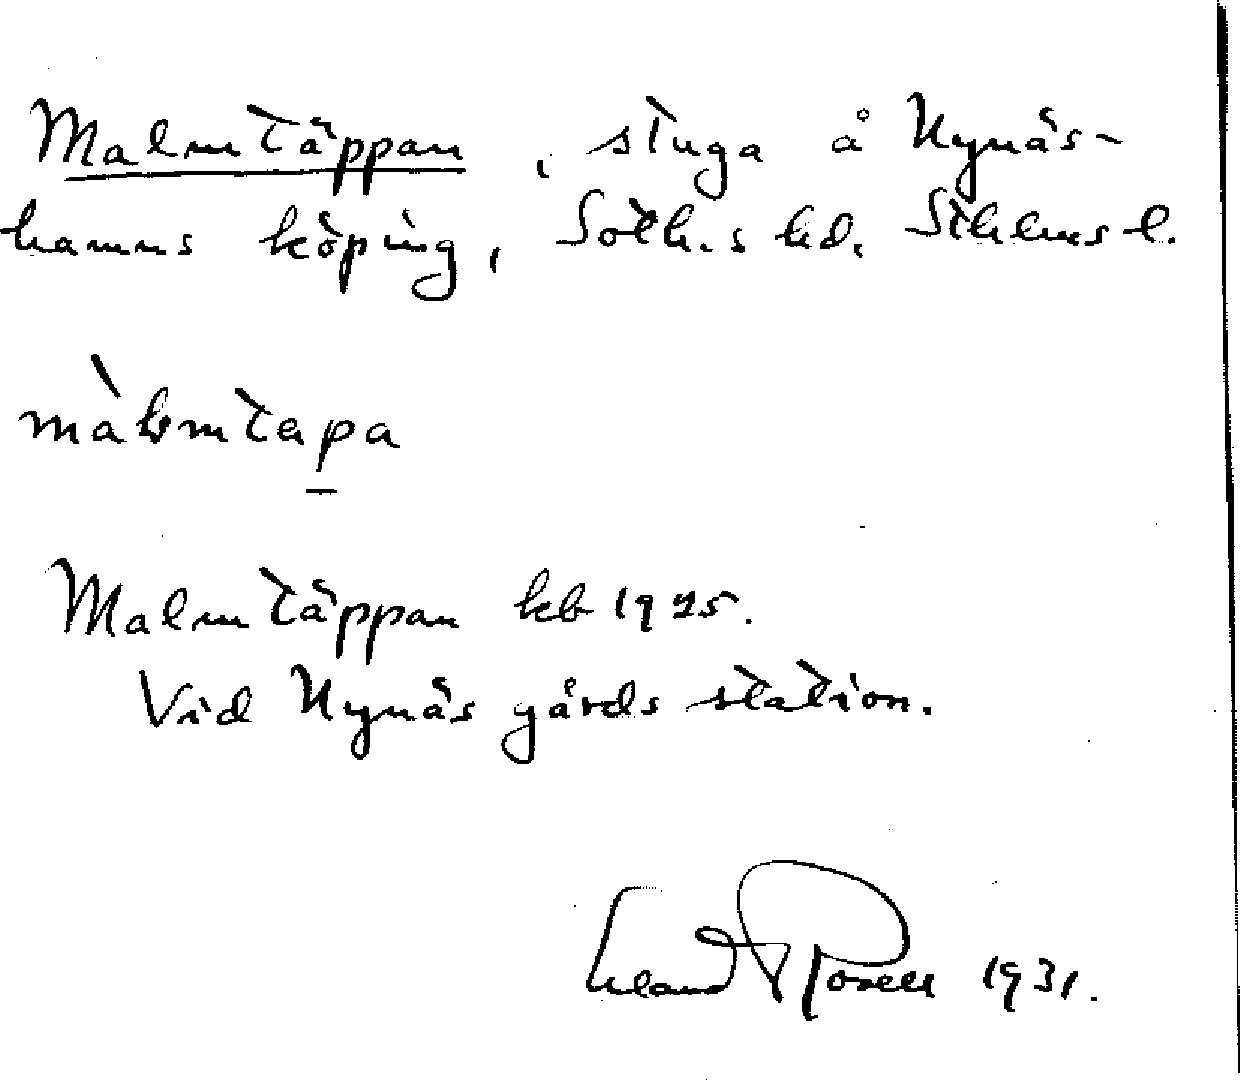 Malmtäppan, stuga å Nynäs-
hamns köping, Soth.s hd. Sthlms l.
màlmtapa
Malmtäppan kb 1925.
Vid Nynäs gårds station.
Erland Rosell 1931.